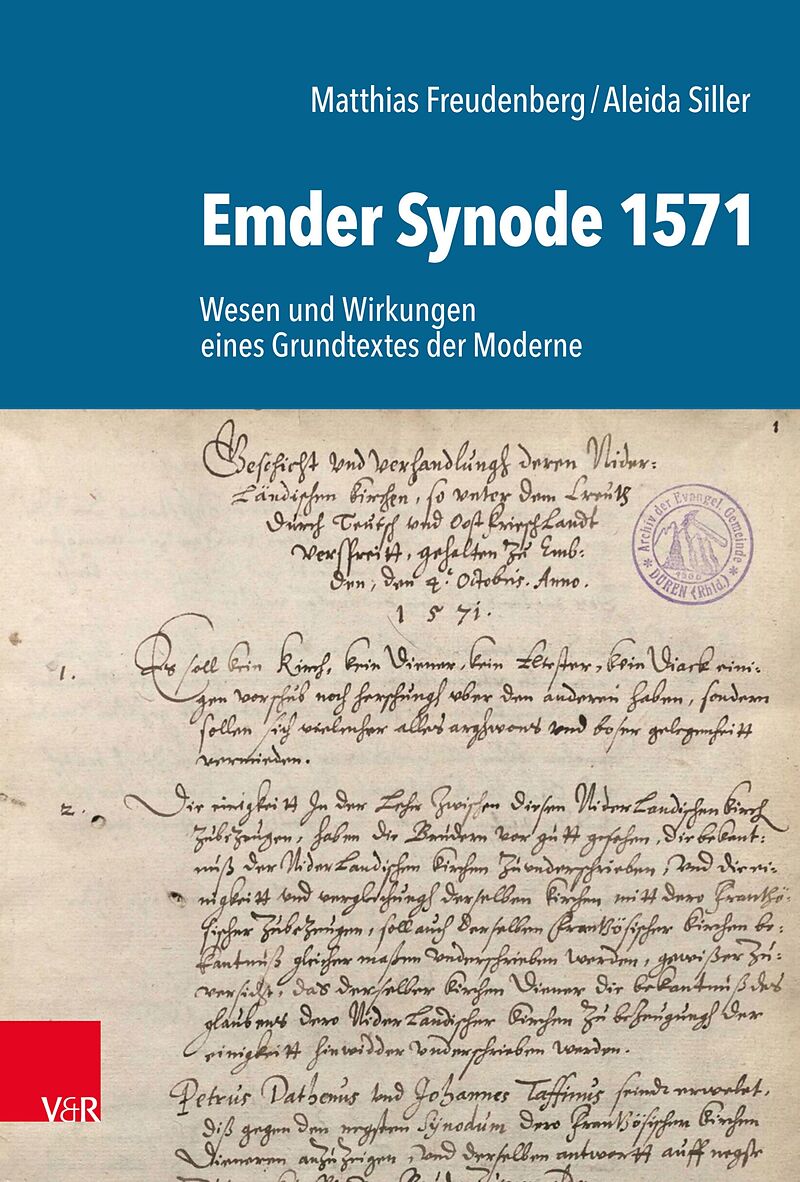 Matthias Freudenberg / Aleida Siller
Emder Synode 1571
Wesen und Wirkungen
eines Grundtextes der Moderne
1
Geschicht und verhandlungh deren Nider-
Ländischen kirchen, so unter dem Creutz
durch Teutsch und Oost Frieschlandt
verspreitt, gehalten zu Emb-
den, den 4. Octobris. Anno.
1571.
Archiv der Evangel. Gemeinde
DÜREN (Rhld.)
1. Es soll kein Kirch, kein Diener, kein Eltester, kein Diack eini-
gen vorschub noch herschungh uber den anderen haben, sondern
sollen sich vielmher alles arghwons und boser gelegenheitt
vermieden.
2. Die einigkeitt In der Lehr zwischen diesen Niderlandischen kirch
zubezeugen, haben die Brudern vor gutt gesehen, die bekant-
nuß der Niderlandischen kirchen zuunderschrieben, und die ei-
nigkeitt und vergleichungh derselben kirchen mitt dero Frantzö-
sischer zubezeugen, soll auch derselben Frantzösischer kirchen be-
kantnuß gleicher maßen underschrieben werden, gewißer zu-
versicht, das derselber kirchen Diener die bekantnuß des
glaubens dero Niderlandischer kirchen zu bezeugungh der
einigkeitt hinwidder underschrieben werden.
Petrus Dathenus und Johannes Taffinus seindt erwelet,
diß gegen den negsten Synodum dero Frantzösischen kirchen
Dieneren anzuzeigen, und derselben antwortt auff negst
V&R